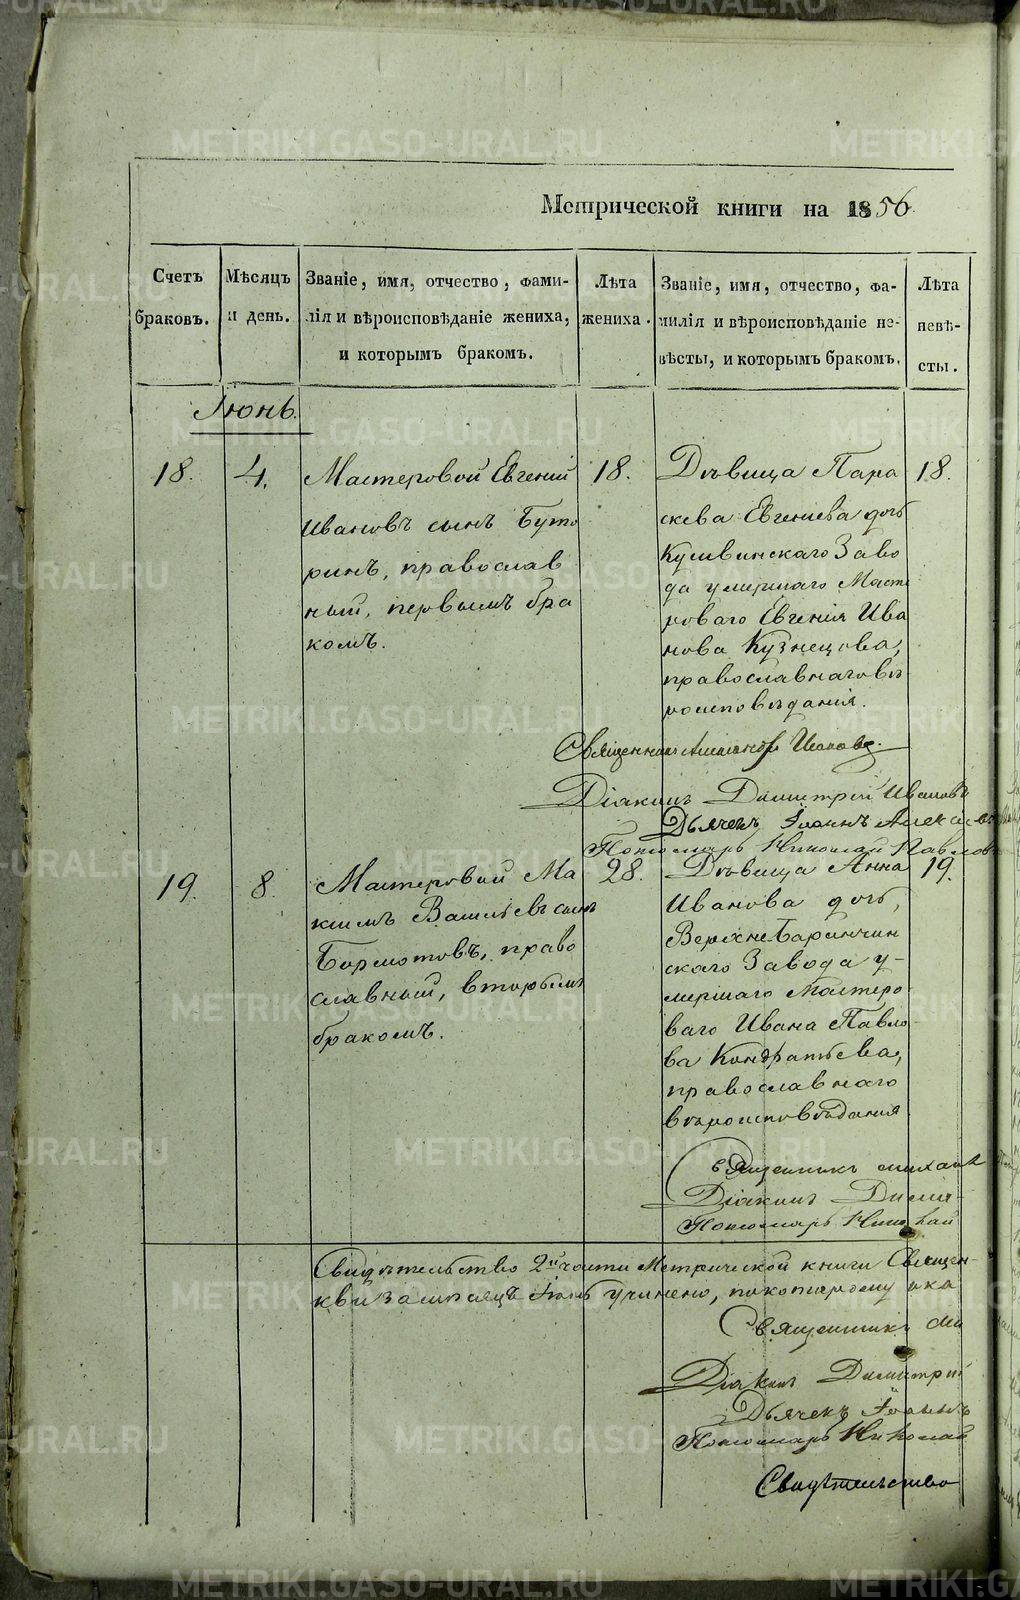 Метрической книги на 1856.
Счетъ браковъ.
Мѣсяцъ и день.
Званіе, имя, отчество, фами-
лія и вѣроисповѣданіе жениха,
и которымъ бракомъ.
Лѣта жениха.
Званіе, имя, отчество, фа-
милія и вѣроисповѣданіе не-
вѣсты, и которымъ бракомъ.
Лѣта невѣ-
сты.
Іюнь.
18.
4.
Мастеровой Евгений
Ивановъ сынъ Буто
ринъ, православ
ный, первымъ бра
комъ.
18.
Дѣвица Пара
скева Евгениева дочь
Кушвинскаго Заво
да умершаго Масте
роваго Евгенія Ива
нова Кузнецова,
православнаго вѣ
роисповѣданія.
18.
Священникъ Ипановъ.
Діаконъ Димитрій Ивановъ
Дьячекъ Іоаннъ Алекса
Пономарь Николай Павлов
19.
8.
Мастеровой Ма
ксимъ Васильевъ сынъ
Бормотовъ, право
славный, вторымъ
бракомъ.
28.
Дѣвица Анна
Иванова дочь,
ВерхнеБаранчин
скаго Завода у-
мершаго Мастеро
ваго Ивана Павло
ва Кондратьева,
православнаго
вѣроисповѣданія
19.
Священникъ Михаил
Діаконъ Дими
Пономарь Николай
Свидѣтельство 2й части Метрической книги Священ
кви за мѣсяцъ Іюнь учинено, по которому ока
Священникъ Ми
Діаконъ Димитрій
Дьячекъ Іоаннъ
Пономарь Николай
Свидѣтельство
METRIKI.GASO-URAL.RU